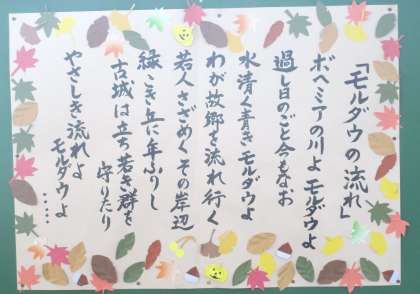 「モルダウの流れ」
ボヘミアの川よ モルダウよ
過し日のごと今もなお
水清く青き モルダウよ
わが故郷を流れ行く
若人さざめく その岸辺
緑こき丘に年ふりし
古城は立ち若き群を
守りたり
やさしき流れよ
モルダウよ
・・・・・・